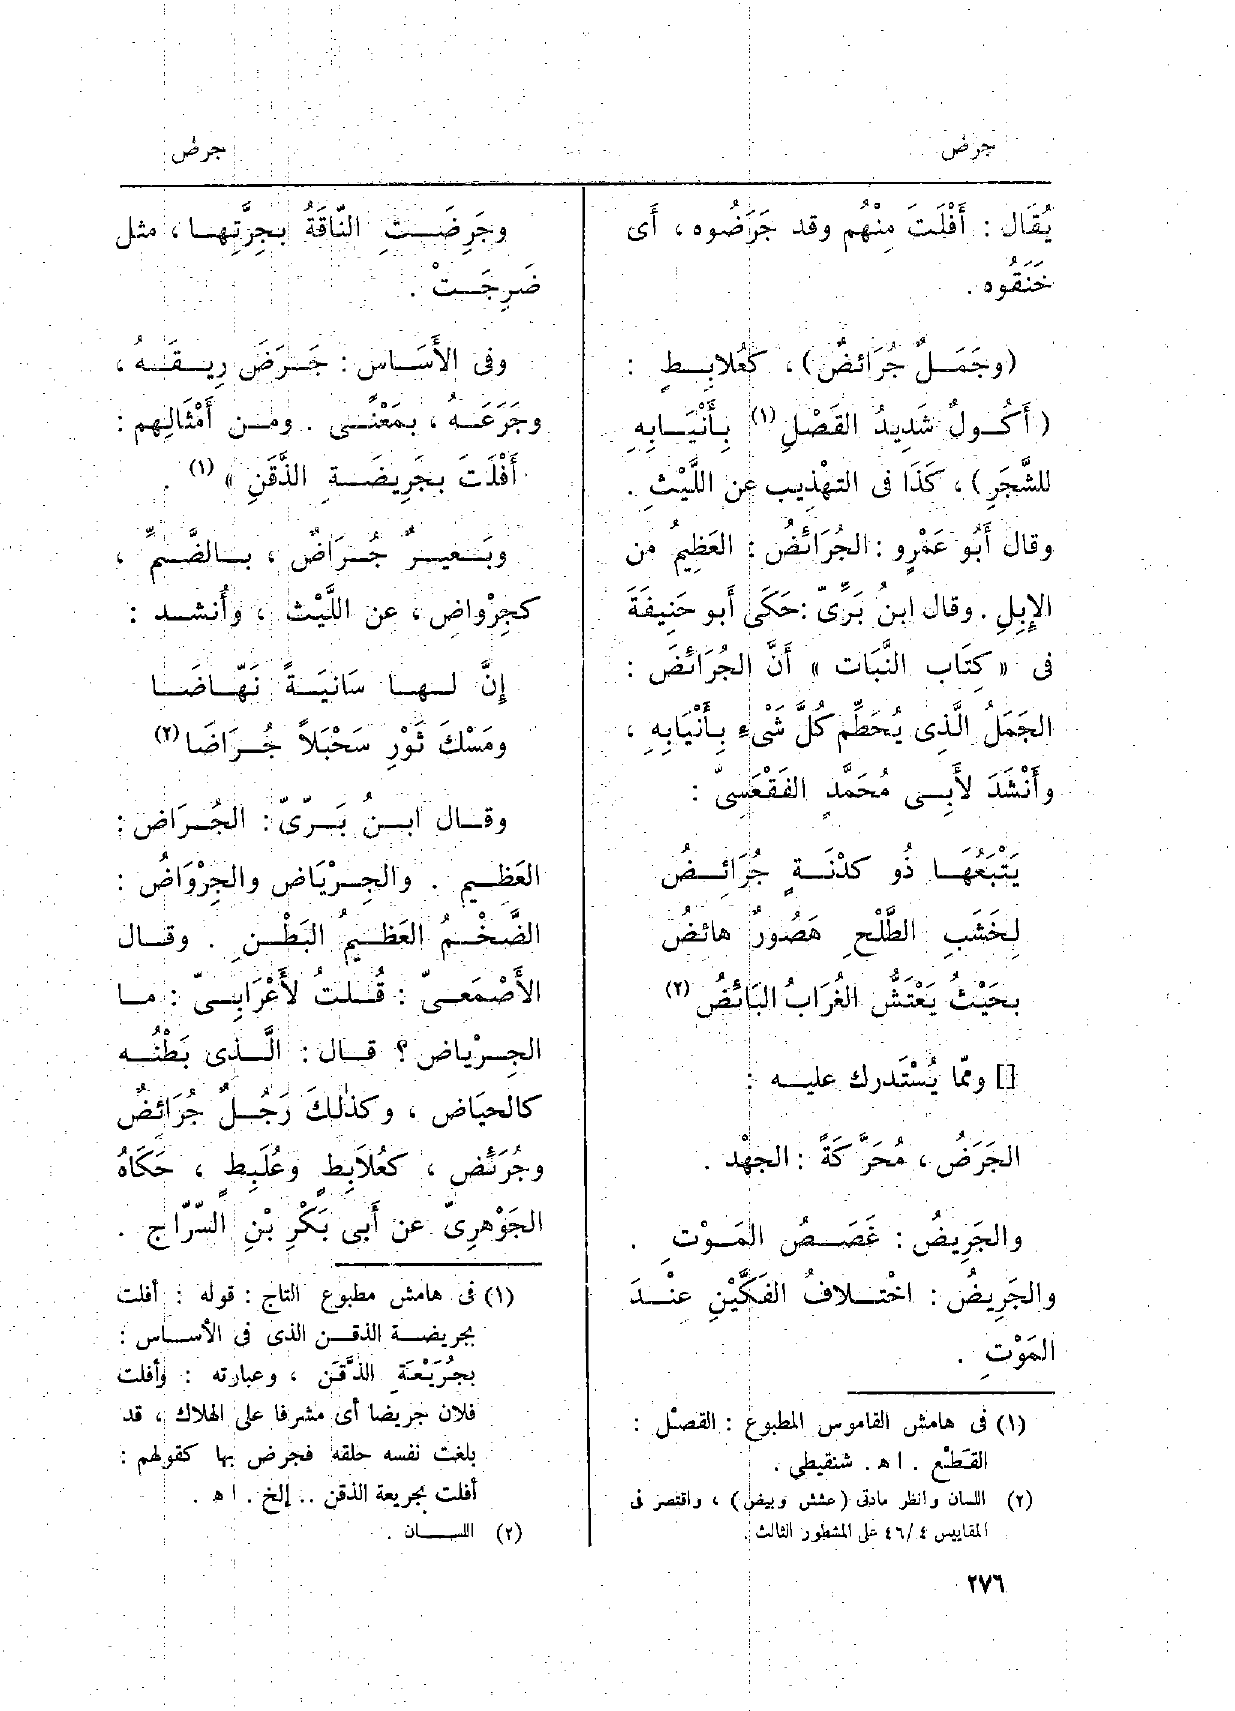 جرض
جرض
يُقَال : أَفْلَتَ مِنْهُم وقد جَرَضُوه ، أَى
خَنَقُوه .
(وجَمَلٌ جُرَائضٌ) ، كعُلابِطٍ :
(أَكُولٌ شَدِيدُ القَصْلِ (١) بِأَنْيَابِهِ
للشَّجَرِ) ، كَذَا فى التهْذِيب عن اللَّيْثِ .
وقال أَبُو عَمْرٍو : الجُرَائضُ : العَظِيمُ من
الإِبِلِ . وقال ابنُ بَرِّىّ : حَكَى أَبو حَنِيفَةَ
فى « كِتَاب النَّبَات » أَنَّ الجُرَائضَ :
الجَمَلُ الَّذِى يُحَطِّم كُلَّ شَىْءٍ بِأَنْيَابِهِ ،
وأَنْشَدَ لأَبِى مُحَمَّدٍ الفَقْعَسِىّ :
يَتْبَعُهَا ذُو كدْنَةٍ جُرَائِضُ
لِخَشَبِ الطَّلْحِ هَصُورٌ هائضُ
بحَيْثُ يَعْتَشُّ الغُرَابُ البَائضُ (٢)
[] وممّا يُسْتَدرك عليه :
الجَرَضُ ، مُحَرَّكَةً : الجهْد .
والجَرِيضُ : غَصَصُ المَوْتِ .
والجَرِيضُ : اخْتلافُ الفَكَّيْنِ عِنْدَ
المَوْتِ .
(١) فى هامش القاموس المطبوع : القصْل :
القَطْع . ا هـ . شنقيطى .
(٢) اللسان وانظر مادتى (عشش وبيض) ، واقتصر فى
المقاييس ٤/ ٤٦ على المشطور الثالث .
وجَرِضَتِ النَّاقَةُ بجِرَّتِها ، مثل
ضَرِجَتْ .
وفى الأَسَاس : جَرَضَ رِيقَهُ ،
وجَرَعَهُ ، بمَعْنًى . ومن أَمْثَالِهم :
أَفْلَتَ بجَرِيضَةِ الذَّقَنِ » (١) .
وبَعيرٌ جُرَاضٌ ، بالضَّمِّ ،
كجِرْواضٍ ، عن اللَّيْث ، وأَنشد :
إِنَّ لها سَانيَةً نَهّاضَا
ومَسْكَ ثَوْرٍ سَحْبَلاً جُرَاضَا (٢)
وقال ابنُ بَرِّىّ : الجُراض :
العَظِيم . والجِرْيَاض والجِرْوَاضُ :
الضَّخْمُ العَظيمُ البَطْنِ . وقال
الأَصْمَعىّ : قُلتُ لأَعْرَابىّ : ما
الجِرْياض ؟ قال : الَّذى بَطْنُه
كالحيَاض ، وكذلكَ رَجُلٌ جُرَائضٌ
وجُرَئض ، كعُلابِطٍ وعُلَبِطٍ ، حَكَاهُ
الجَوْهرِىّ عن أَبى بَكْرِ بْنِ السَّرّاج .
(١) فى هامش مطبوع التاج : قوله : أفلت
بجريضة الذقن الذى فى الأساس :
بجُرَيْعَةِ الذَّقَن ، وعبارته : وأفلت
فلان جريضا أى مشرفا على الهلاك ، قد
بلغت نفسه حلقه فجرض بها كقولهم :
أفلت بجريعة الذقن .. إلخ . ا هـ .
(٢) اللسان .
٢٧٦